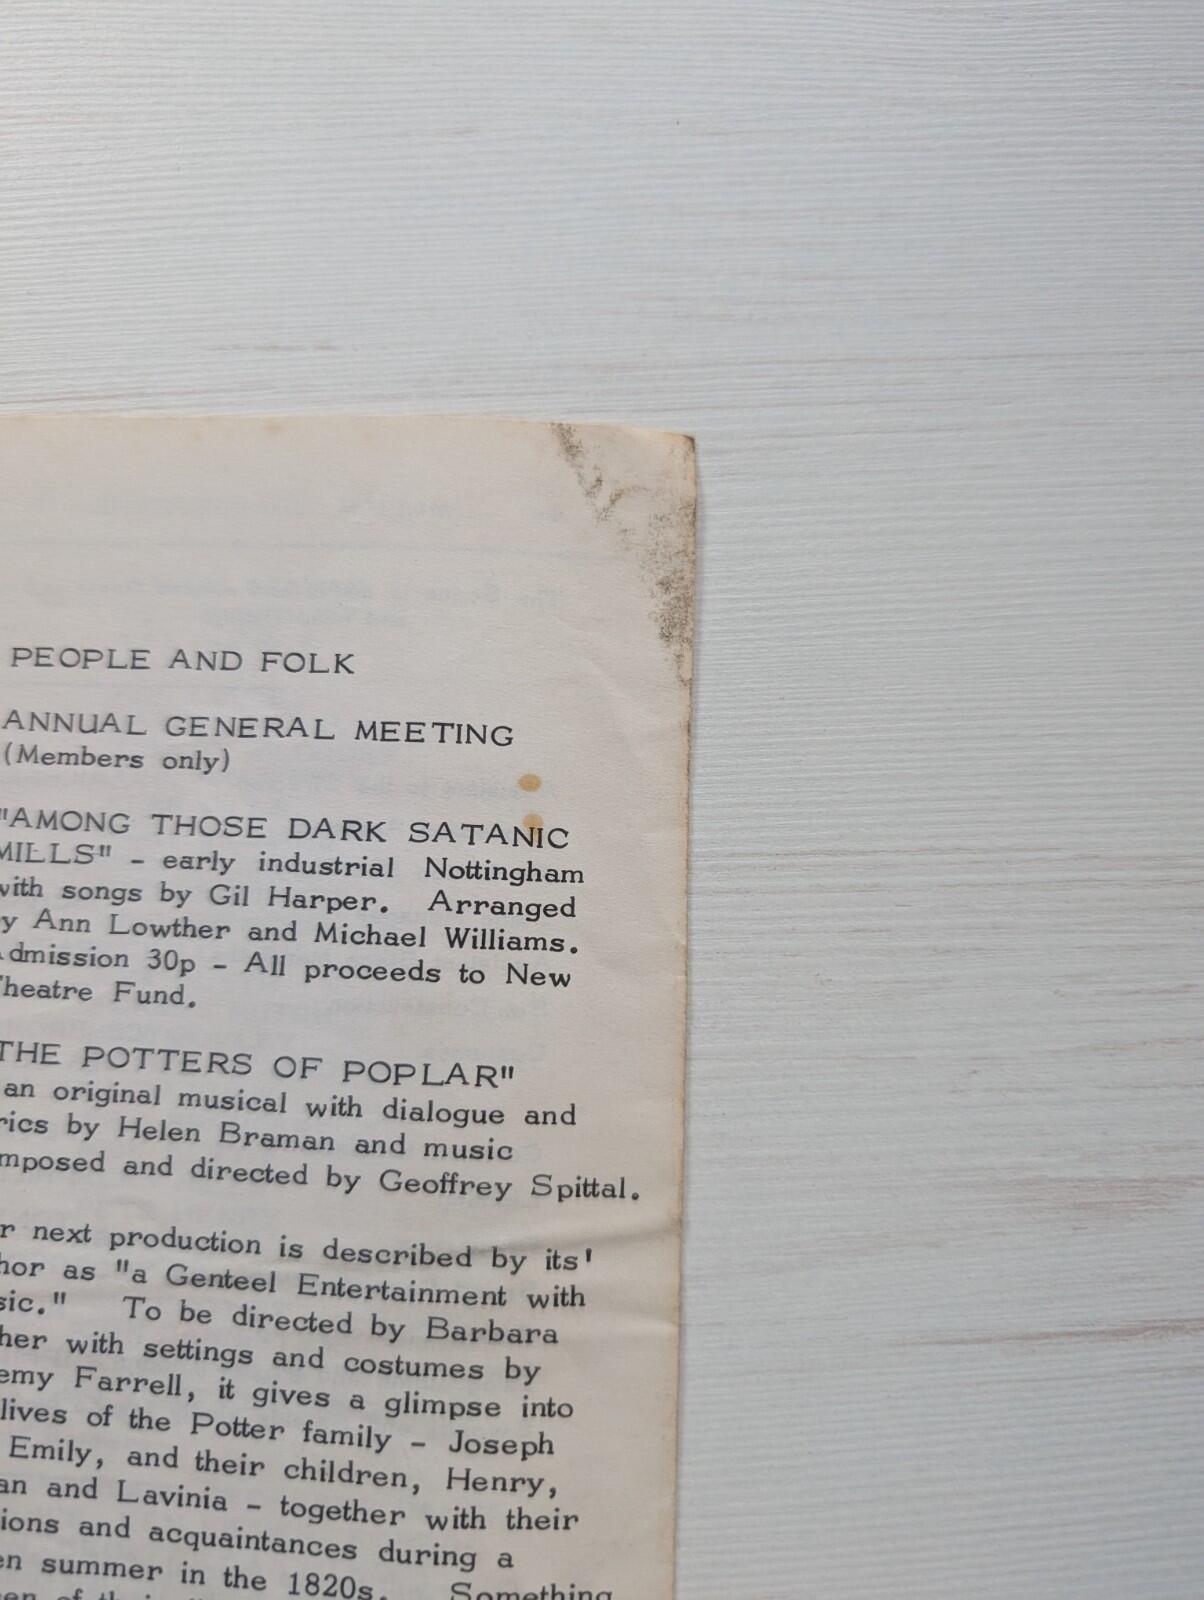 PEOPLE AND FOLK
ANNUAL GENERAL MEETING
(Members only)
"AMONG THOSE DARK SATANIC
MILLS" - early industrial Nottingham
with songs by Gil Harper. Arranged
by Ann Lowther and Michael Williams.
Admission 30p - All proceeds to New
Theatre Fund.
THE POTTERS OF POPLAR"
an original musical with dialogue and
rics by Helen Braman and music
mposed and directed by Geoffrey Spittal.
r next production is described by its'
hor as "a Genteel Entertainment with
sic." To be directed by Barbara
her with settings and costumes by
emy Farrell, it gives a glimpse into
lives of the Potter family - Joseph
Emily, and their children, Henry,
an and Lavinia - together with their
ions and acquaintances during a
en summer in the 1820s. Something